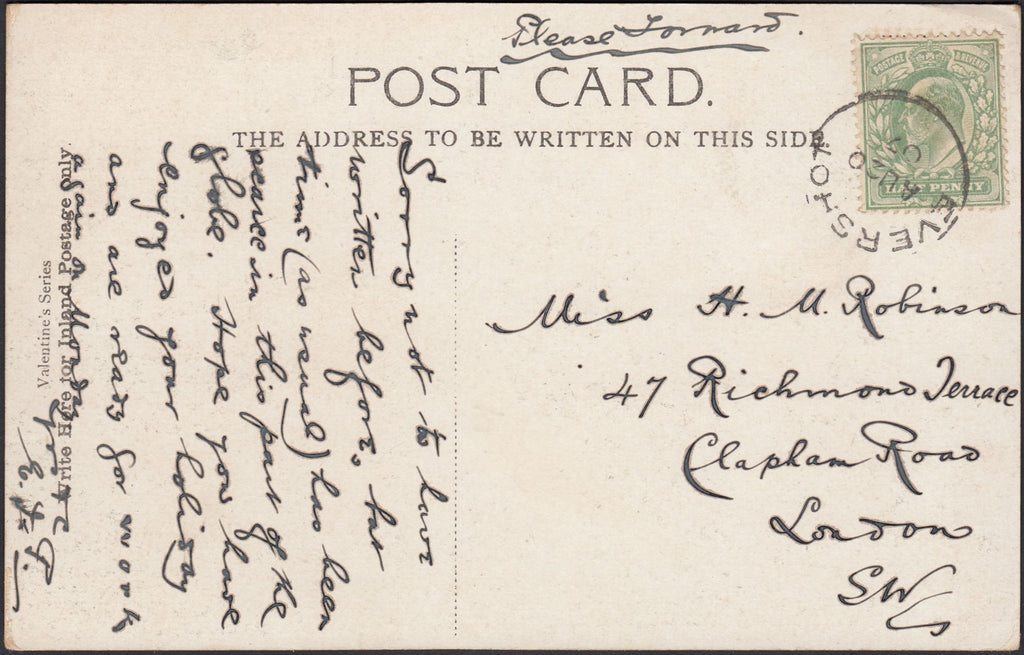 Please Forward.
POST CARD.
THE ADDRESS TO BE WRITTEN ON THIS SIDE.
POSTAGE & REVENUE
HALF PENNY
EVERSHOT
AU 20
07
Miss H. M. Robinson
47 Richmond Terrace
Clapham Road
London
SW
Sorry not to have
written before, but
time (as usual) has been
scarce in this part of the
globe. Hope you have
enjoyed your holiday
and are ready for work
again on Monday
E. F.
Valentine's Series
Write Here for Inland Postage only.